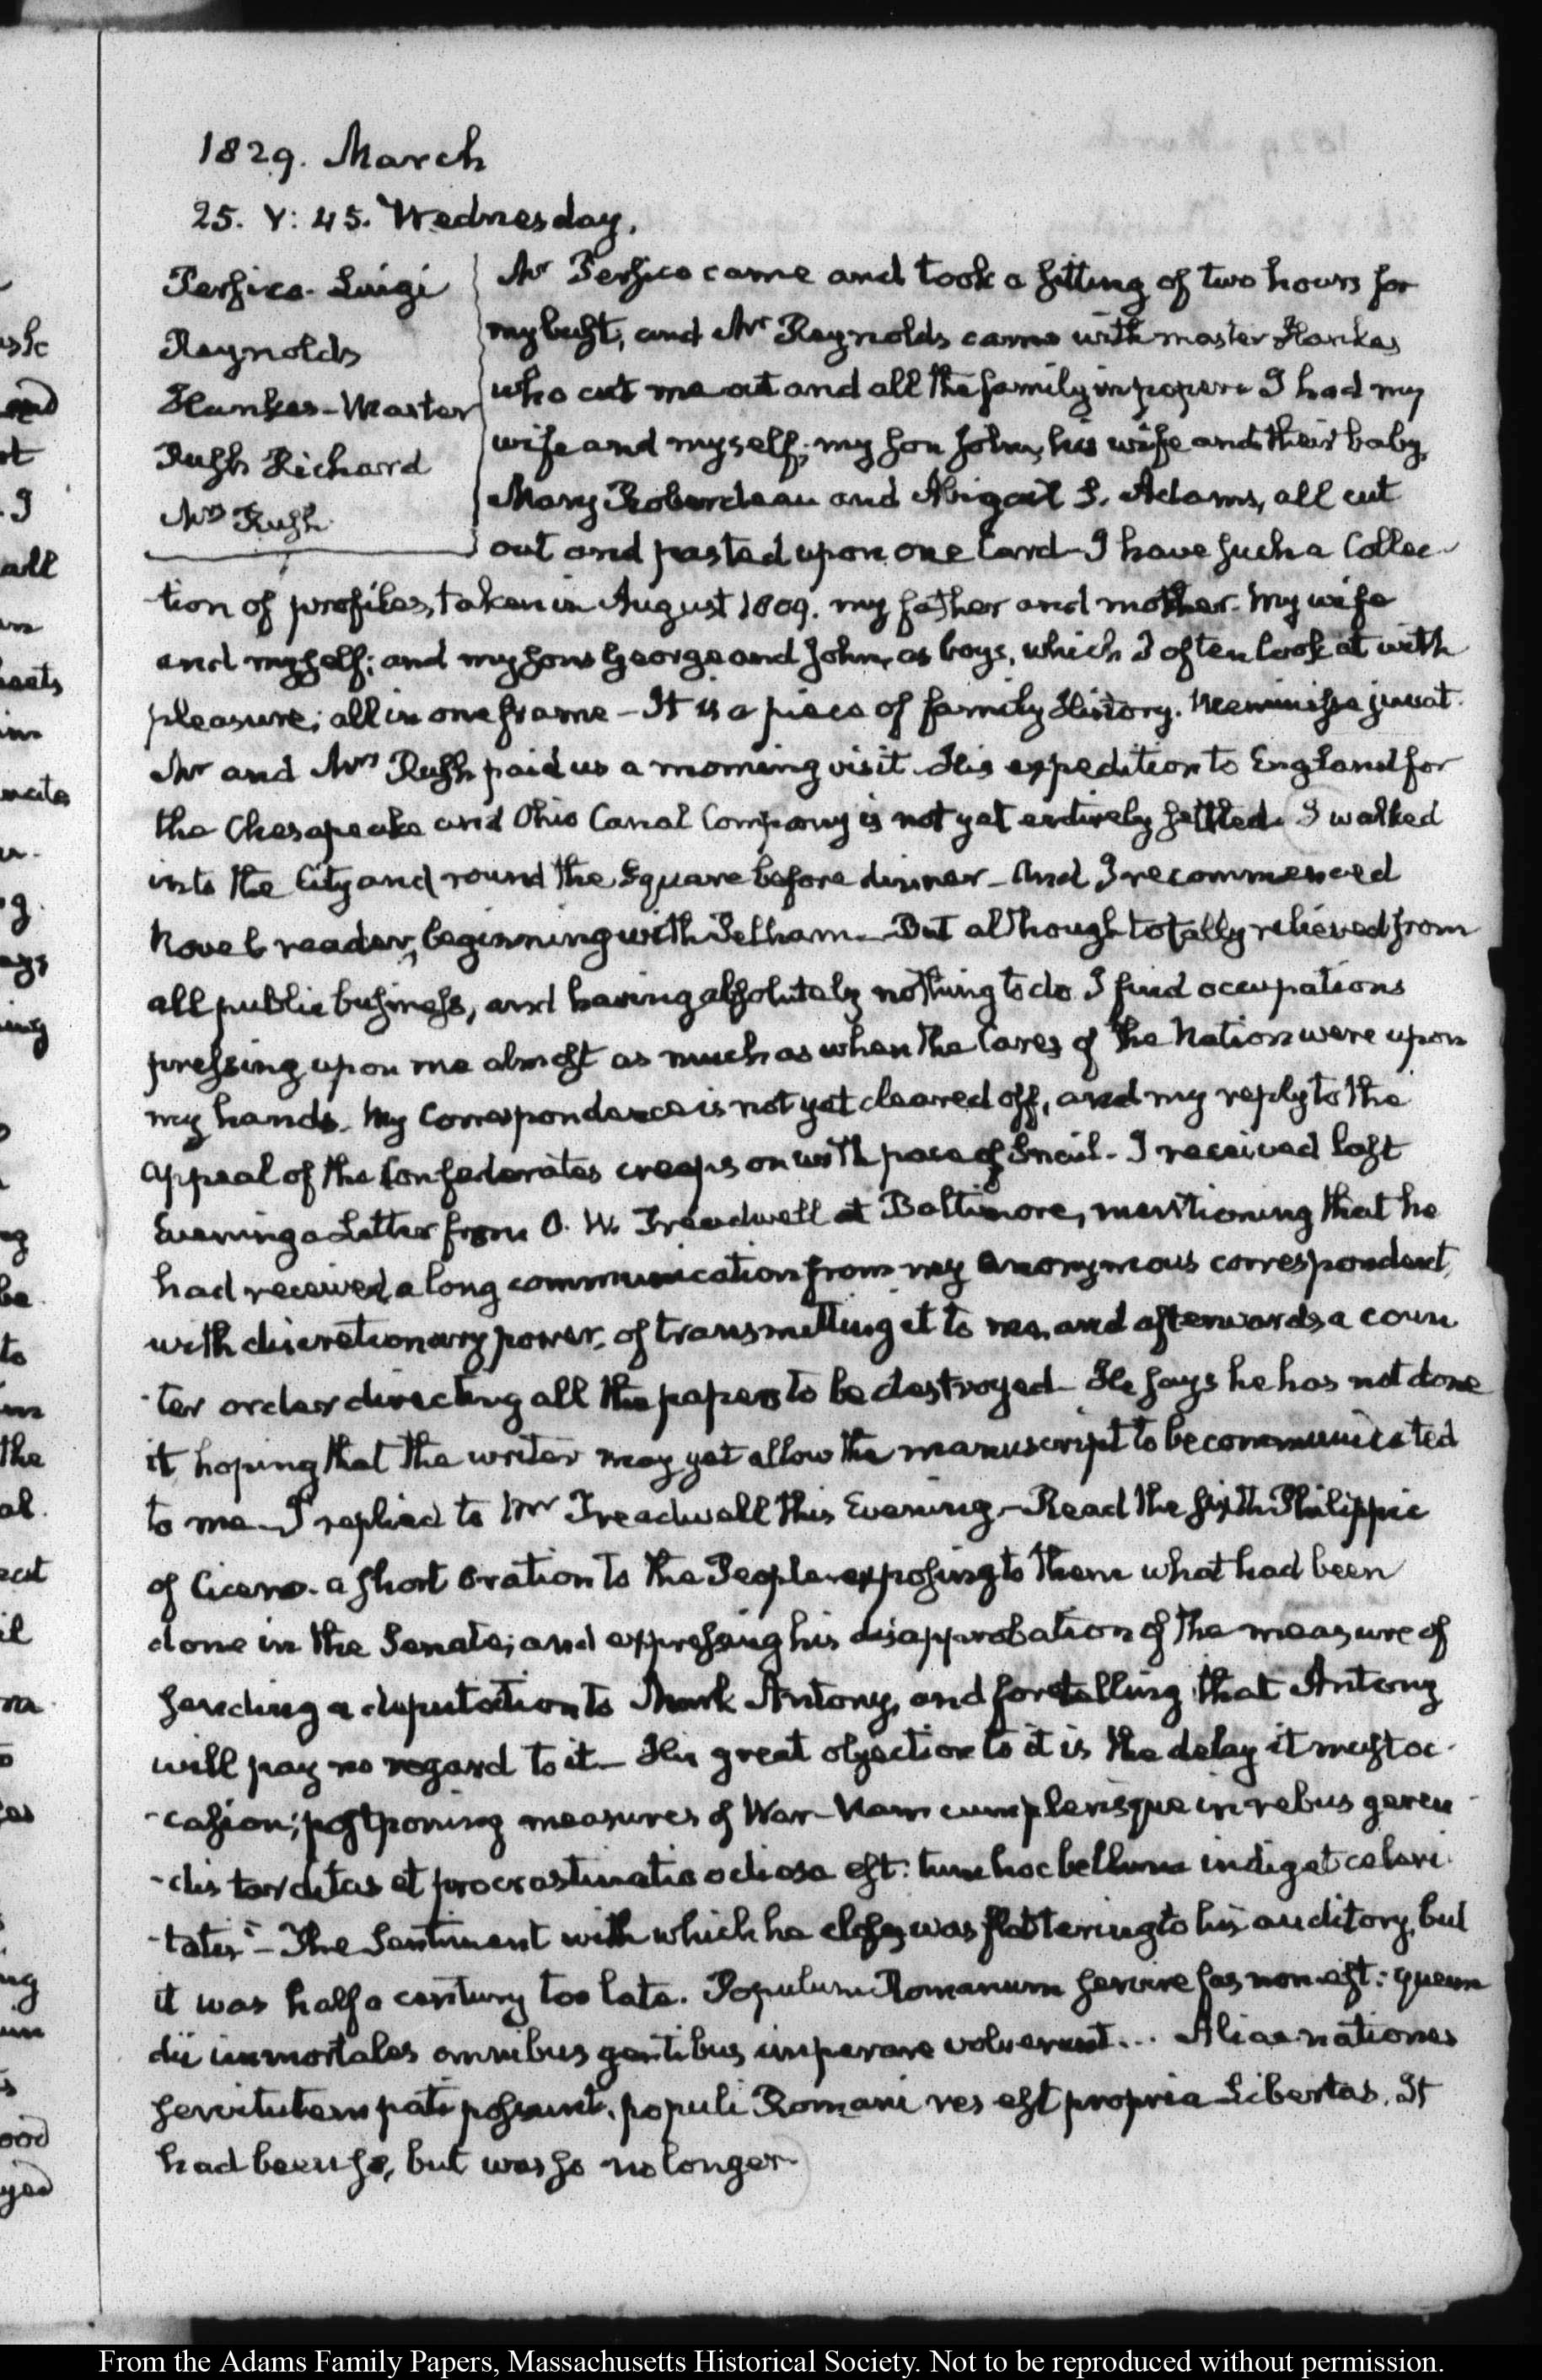 1829. March
25. V: 45. Wednesday.
Persico. Luigi
Reynolds
Hankes - Master
Rush Richard
Mrs Rush
Mr Persico came and took a sitting of two hours for
my bust, and Mr Reynolds came with master Hankes
who cut me out and all the family in paper. I had my
wife and myself; my son John, his wife and their baby,
Mary Roberdeau and Abigail S. Adams, all cut
out and pasted upon one Card - I have such a Collec-
-tion of profiles, taken in August 1809. my father and mother - my wife
and myself; and my sons George and John, as boys, which I often look at with
pleasure; all in one frame - It is a piece of family History. Meminisse juvat.
Mr and Mrs Rush paid us a morning visit. His expedition to England for
the Chesapeake and Ohio Canal Company is not yet entirely settled. I walked
into the City and round the Square before dinner - And I recommenced
Novel reader, beginning with Pelham - But although totally relieved from
all public business, and having absolutely nothing to do I find occupations
pressing upon me almost as much as when the Cares of the Nation were upon
my hands. My Correspondence is not yet cleared off, and my reply to the
Appeal of the Confederates creeps on with pace of Snail - I received last
Evening a Letter from O. W. Treadwell at Baltimore, mentioning that he
had received a long communication from my anonymous correspondent,
with discretionary power, of transmitting it to me, and afterwards a coun
-ter order directing all the papers to be destroyed - He says he has not done
it hoping that the writer may yet allow the manuscript to be communicated
to me - I replied to Mr Treadwell this Evening - Read the sixth Philippic
of Cicero. a short Oration to the People exposing to them what had been
done in the Senate; and expressing his disapprobation of the measure of
sending a deputation to Mark Antony, and foretelling that Antony
will pay no regard to it - His great objection to it is the delay it must oc-
-casion; postponing measures of War - Nam cum plerisque in rebus geren
-dis tarditas et procrastinatio odiosa est: tum hoc bellum indiget celeri
-tatis" - The Sentiment with which he closes was flattering to his auditory, but
it was half a century too late. Populum Romanum servire fas non est: quem
dii immortales omnibus gentibus imperare voluerunt... Aliae nationes
servitutem pati possunt, populi Romani res est propria Libertas. It
had been so, but was so no longer.
she
and
ot
I
all
im
nato
g
ing
be
to
the
al.
il
ng
ood
From the Adams Family Papers, Massachusetts Historical Society. Not to be reproduced without permission.